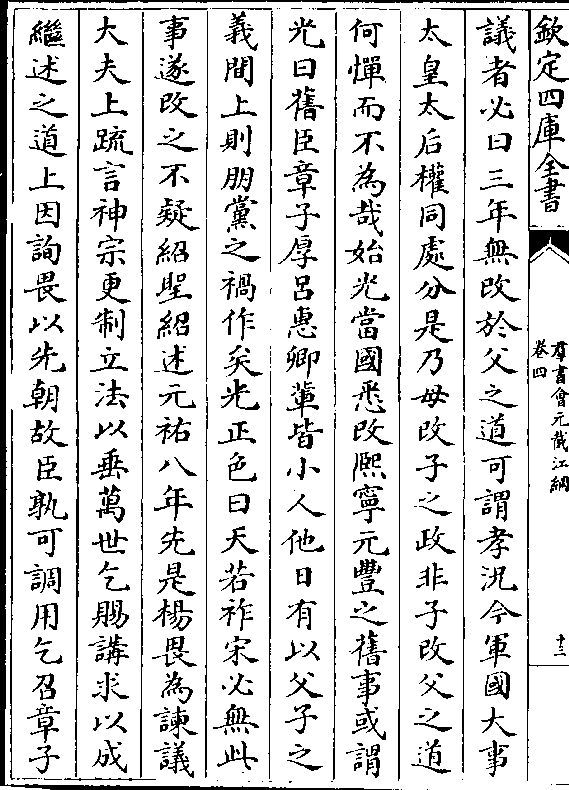 欽定四庫全書
羣書會元截江綱
卷四
十三
議者必曰三年無改於父之道可謂孝況今軍國大事
太皇太后權同處分是乃母改子之政非子改父之道
何憚而不為哉始光當國悉改熈寧元豐之舊事或謂
光曰舊臣章子厚呂惠卿輩皆小人他日有以父子之
義間上則朋黨之禍作矣光正色曰天若祚宋必無此
事遂改之不疑紹聖紹述元祐八年先是楊畏為諫議
大夫上疏言神宗更制立法以垂萬世乞賜講求以成
繼述之道上因詢畏以先朝故臣孰可調用乞召章子